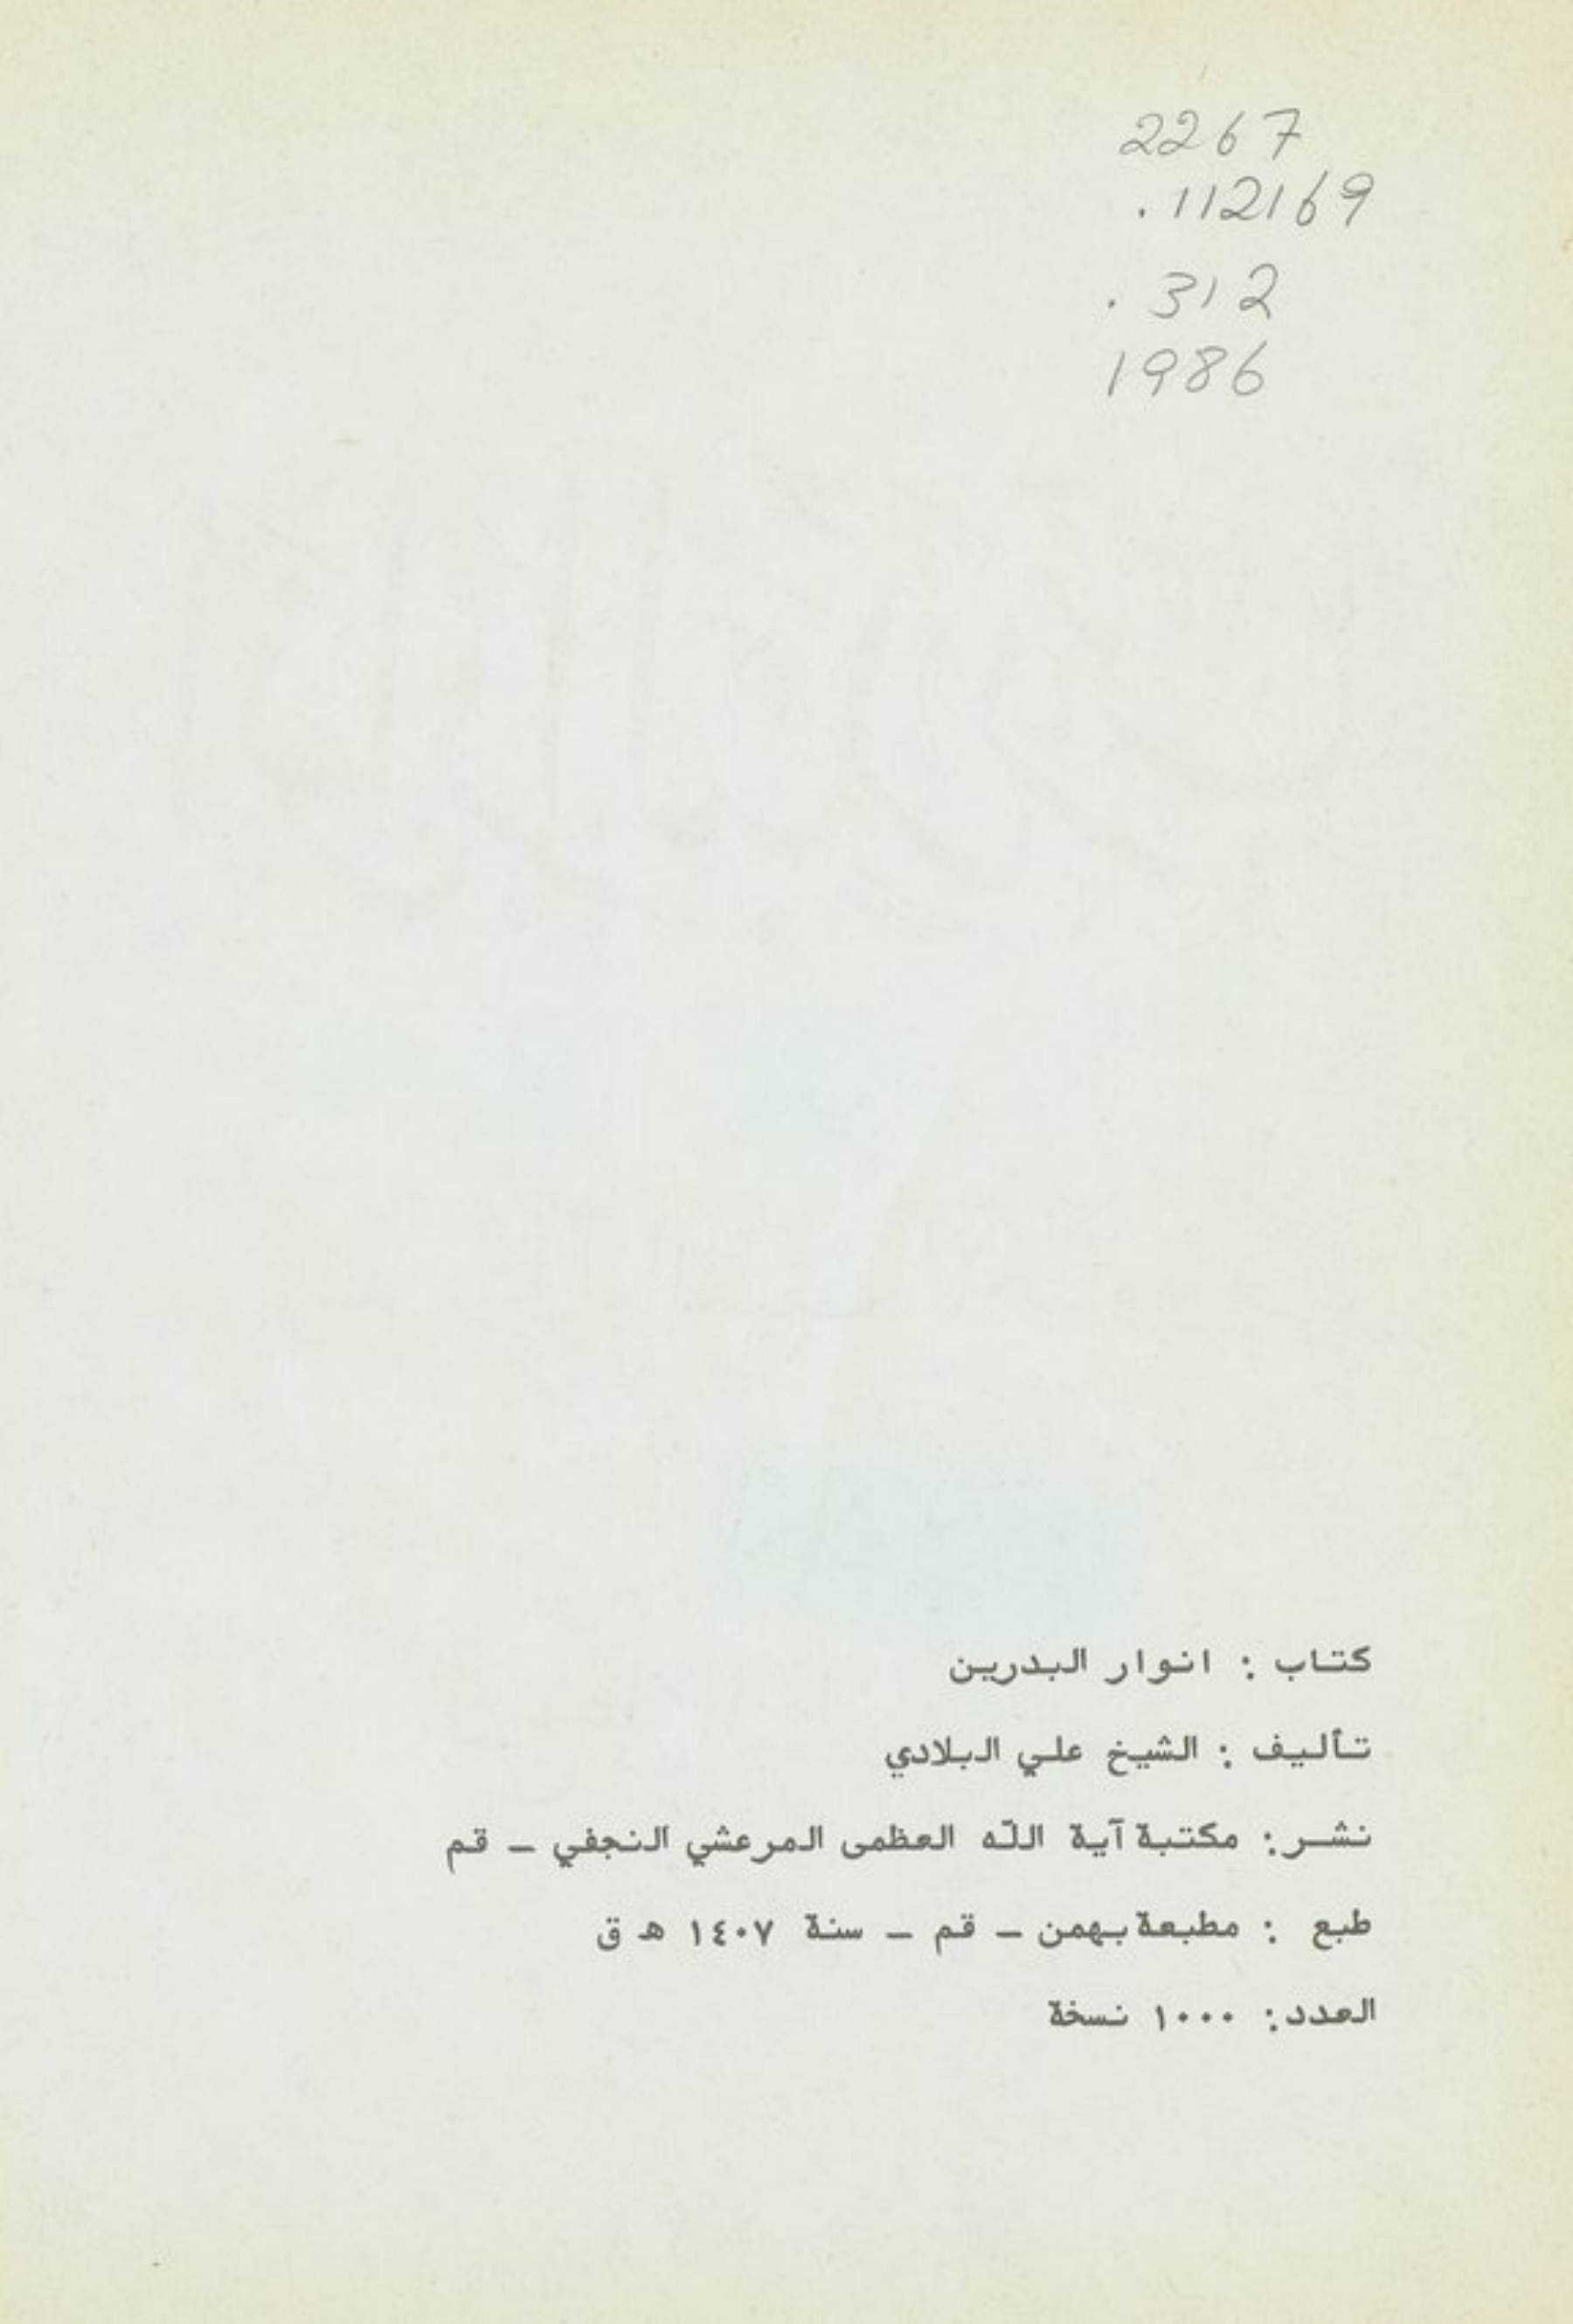 2267
.112169
.312
1986
كتاب : انوار البدرين
تأليف : الشيخ علي البلادي
نشر : مكتبة آية اللّه العظمى المرعشي النجفي – قم
طبع : مطبعة بهمن – قم – سنة ١٤٠٧ هـ ق
العدد : ١٠٠٠ نسخة